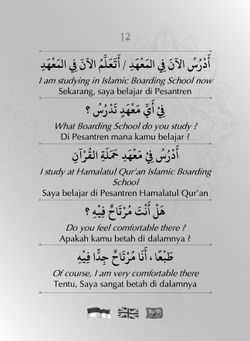 12
أَدْرُسُ الآنَ فِي المَعْهَدِ / أَتَعَلَّمُ الآنَ فِي المَعْهَدِ
I am studying in Islamic Boarding School now
Sekarang, saya belajar di Pesantren
فِيْ أَيِّ مَعْهَدٍ تَدْرُسُ ؟
What Boarding School do you study ?
Di Pesantren mana kamu belajar ?
أَدْرُسُ فِيْ مَعْهَدِ حَمَلَةِ القُرْآنِ
I study at Hamalatul Qur'an Islamic Boarding
School
Saya belajar di Pesantren Hamalatul Qur'an
هَلْ أَنْتَ مُرْتَاحٌ فِيْهِ ؟
Do you feel comfortable there ?
Apakah kamu betah di dalamnya ?
طَبْعًا ، أَنَا مُرْتَاحٌ جِدًّا فِيْهِ
Of course, I am very comfortable there
Tentu, Saya sangat betah di dalamnya